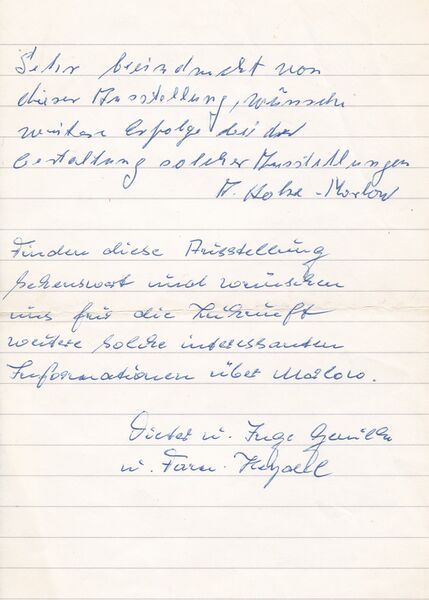 Sehr beeindruckt von
dieser Ausstellung, wünsche
weitere Erfolge bei der
Gestaltung solcher Ausstellungen
Marlow
Finden diese Ausstellung
sehenswert und wünschen
uns für die Zukunft
weitere solche interessanten
Informationen über Marlow.
Dieter u. Inge
u. Fam.